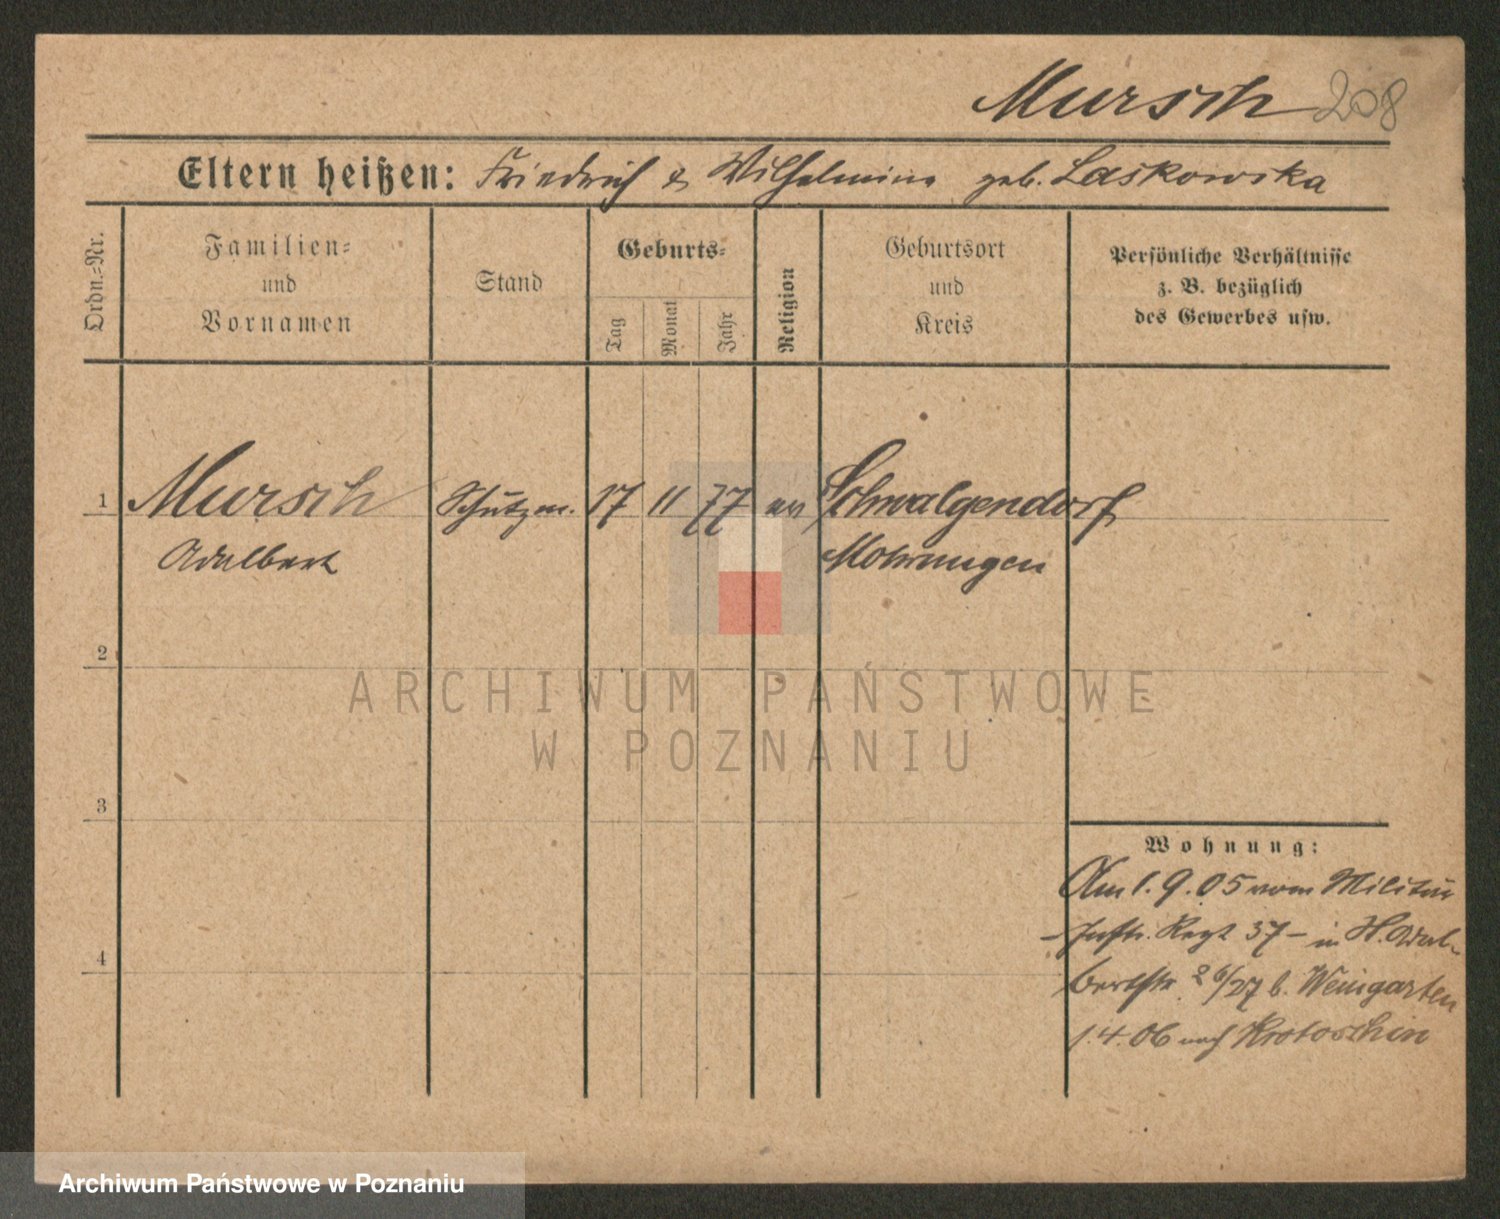 Mursch 208
Eltern heißen: Friedrich & Wilhelmine geb. Laskowska
Ordn.=Nr.
Familien=
und
Vornamen
Stand
Geburts=
Tag
Monat
Jahr
Religion
Geburtsort
und
Kreis
Persönliche Verhältnisse
z. B. bezüglich
des Gewerbes usw.
1 Mursch Schutzm. 17 11 77 ev Schwalgendorf
Adalbert Mohrungen
2
ARCHIWUM PAŃSTWOWE
W POZNANIU
3
Wohnung:
Am 1.9.05 vom Militär
- Inftr. Regt 37 - in H. Adal-
4
bertstr. 26/27 b. Weingarten
1.4.06 nach Krotoschin
Archiwum Państwowe w Poznaniu